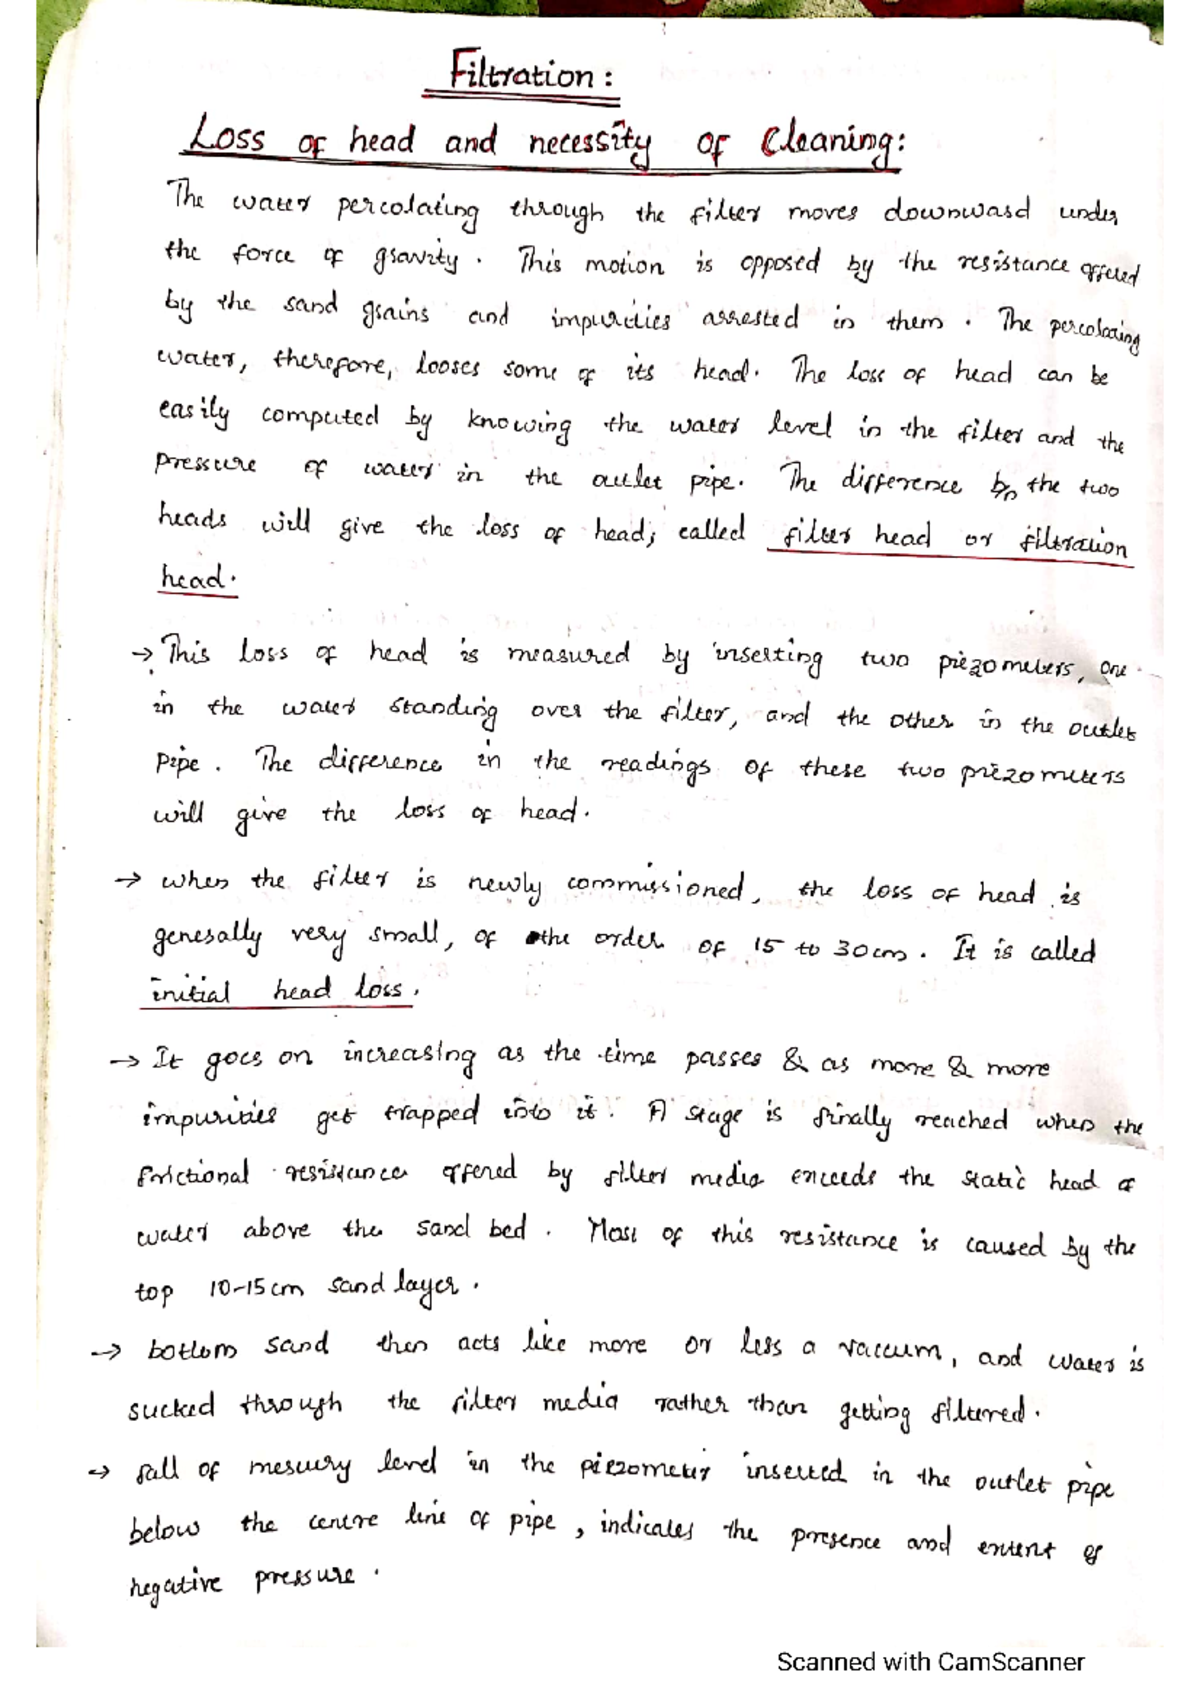 Filtration:
Loss of head and necessity of Cleaning:
The water percolating through the filter moves downward under
the force of gravity. This motion is opposed by the resistance offered
by the sand grains and impurities arrested in them. The percolating
water, therefore, looses some of its head. The loss of head can be
easily computed by knowing the water level in the filter and the
pressure of water in the outlet pipe. The difference b/n the two
heads will give the loss of head, called filter head or filtration
head.
→ This loss of head is measured by inserting two piezometers, one
in the water standing over the filter, and the other in the outlet
pipe. The difference in the readings of these two piezometers
will give the loss of head.
→ when the filter is newly commissioned, the loss of head is
generally very small, of the order of 15 to 30cm. It is called
initial head loss.
→ It goes on increasing as the time passes & as more & more
impurities get trapped into it. A stage is finally reached when the
frictional resistance offered by filter media exceeds the static head of
water above the sand bed. Most of this resistance is caused by the
top 10-15cm sand layer.
→ bottom sand then acts like more or less a vaccum, and water is
sucked through the filter media rather than getting filtered.
→ fall of mercury level in the piezometer inserted in the outlet pipe
below the centre line of pipe, indicates the presence and extent of
negative pressure.
Scanned with CamScanner